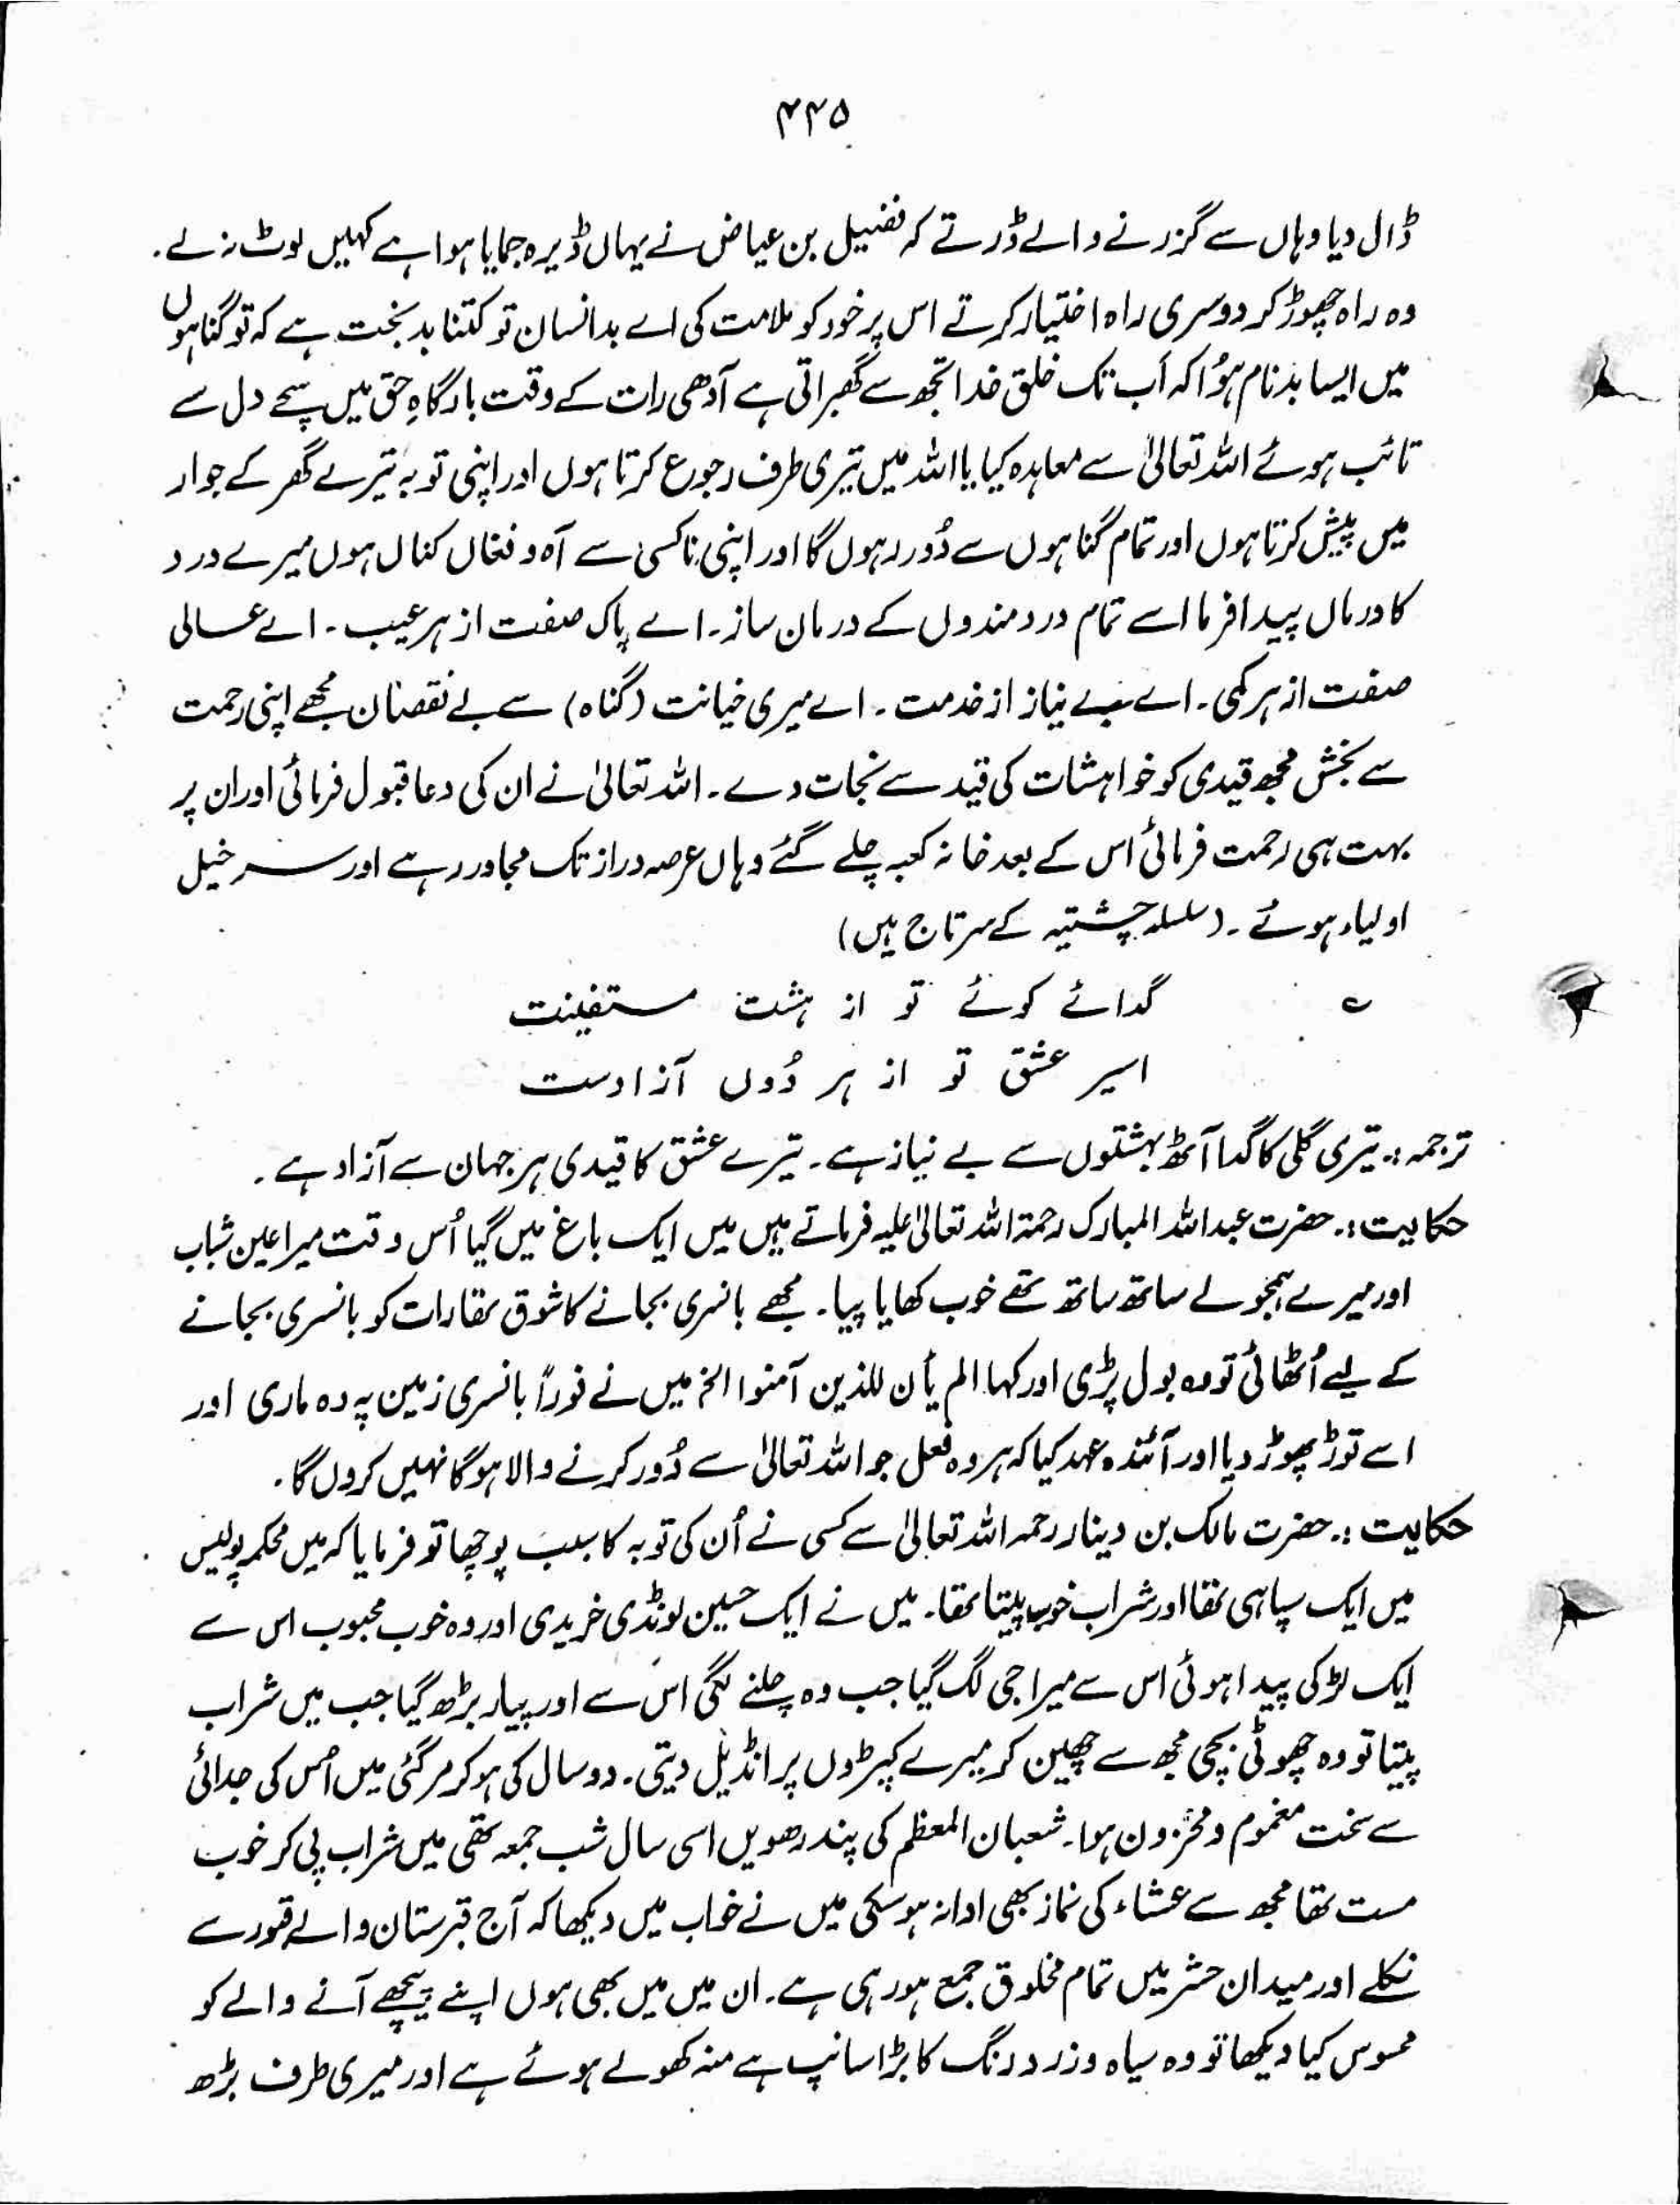 ۴۴۵
ڈال دیا وہاں سے گزرنے والے ڈرتے کہ فضیل بن عیاض نے یہاں ڈیرہ جمایا ہوا ہے کہیں لوٹ نہ لے۔
وہ راہ چھوڑ کر دوسری راہ اختیار کرتے اس پر خود کو ملامت کی اے بد انسان تو کتنا بد بخت ہے کہ تو گناہوں
میں ایسا بدنام ہؤا کہ اب تک خلق خدا تجھ سے گھبراتی ہے آدھی رات کے وقت بارگاہِ حق میں سچے دل سے
تائب ہوئے اللہ تعالیٰ سے معاہدہ کیا یا اللہ میں تیری طرف رجوع کرتا ہوں اور اپنی توبہ تیرے گھر کے جوار
میں پیش کرتا ہوں اور تمام گناہوں سے دُور رہوں گا اور اپنی ناکسی سے آہ و فغاں کناں ہوں میرے درد
کا درماں پیدا فرما اے تمام دردمندوں کے درمان ساز۔ اے پاک صفت از ہر عیب۔ اے عالی
صفت از ہر کمی۔ اے بے نیاز از خدمت۔ اے میری خیانت (گناہ) سے بے نقصان مجھے اپنی رحمت
سے بخش مجھ قیدی کو خواہشات کی قید سے نجات دے۔ اللہ تعالیٰ نے ان کی دعا قبول فرمائی اور ان پر
بہت ہی رحمت فرمائی اس کے بعد خانہ کعبہ چلے گئے وہاں عرصہ دراز تک مجاور رہے اور سرخیل
اولیاء ہوئے۔ (سلسلہ چشتیہ کے سرتاج ہیں)
؎ گدائے کوئے تو از ہشت مستغنیت
اسیر عشق تو از ہر دُوں آزادست
ترجمہ:۔ تیری گلی کا گدا آٹھ بہشتوں سے بے نیاز ہے۔ تیرے عشق کا قیدی ہر جہان سے آزاد ہے۔
حکایت:۔ حضرت عبداللہ المبارک رحمۃ اللہ تعالیٰ علیہ فرماتے ہیں میں ایک باغ میں گیا اُس وقت میرا عین شباب
اور میرے ہمجولے ساتھ ساتھ تھے خوب کھایا پیا۔ مجھے بانسری بجانے کا شوق تھا رات کو بانسری بجانے
کے لیے اُٹھائی تو وہ بول پڑی اور کہا الم یأن للذین آمنوا الخ میں نے فوراً بانسری زمین پہ دہ ماری اور
اسے توڑ پھوڑ دیا اور آئندہ عہد کیا کہ ہر وہ فعل جو اللہ تعالیٰ سے دُور کرنے والا ہوگا نہیں کروں گا۔
حکایت:۔ حضرت مالک بن دینار رحمہ اللہ تعالیٰ سے کسی نے اُن کی توبہ کا سبب پوچھا تو فرمایا کہ میں محکمہ پولیس
میں ایک سپاہی تھا اور شراب خوب پیتا تھا۔ میں نے ایک حسین لونڈی خریدی اور وہ خوب محبوب اس سے
ایک لڑکی پیدا ہوئی اس سے میرا جی لگ گیا جب وہ چلنے لگی اس سے اور پیار بڑھ گیا جب میں شراب
پیتا تو وہ چھوٹی بچی مجھ سے چھین کر میرے کپڑوں پر انڈیل دیتی۔ دو سال کی ہو کر مر گئی میں اُس کی جدائی
سے سخت مغموم و محزون ہوا۔ شعبان المعظم کی پندرھویں اسی سال شب جمعہ تھی میں شراب پی کر خوب
مست تھا مجھ سے عشاء کی نماز بھی ادا نہ ہو سکی میں نے خواب میں دیکھا کہ آج قبرستان والے قبور سے
نکلے اور میدان حشر میں تمام مخلوق جمع ہو رہی ہے۔ ان میں میں بھی ہوں اپنے پیچھے آنے والے کو
محسوس کیا دیکھا تو وہ سیاہ و زرد رنگ کا بڑا سانپ ہے منہ کھولے ہوئے ہے اور میری طرف بڑھ